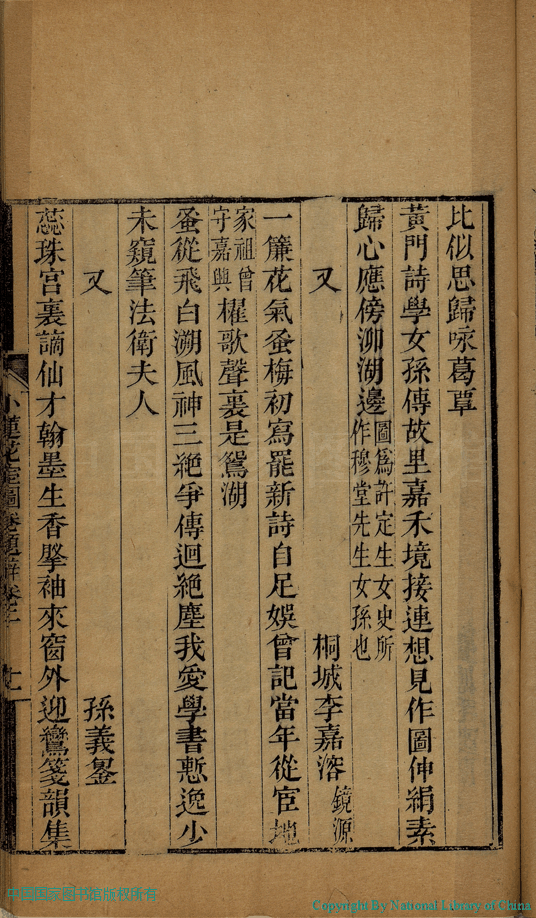 比似思歸咏葛覃
黃門詩學女孫傳故里嘉禾境接連想見作圖伸絹素
歸心應傍泖湖邊圖爲許定生女史所作穆堂先生女孫也
又 桐城李嘉溶鏡源
一簾花氣蚤梅初寫罷新詩自足娛曾記當年從宦地
家祖曾守嘉興櫂歌聲裏是鴛湖
蚤從飛白溯風神三絶爭傳迴絶塵我愛學書慙逸少
未窺筆法衛夫人
又 孫義鋆
蕊珠宮裏謫仙才翰墨生香擘袖來窗外迎鸞箋韻集
小蓮花室圖卷題辭卷二 七
中国国家图书馆版权所有
Copyright By National Library of China